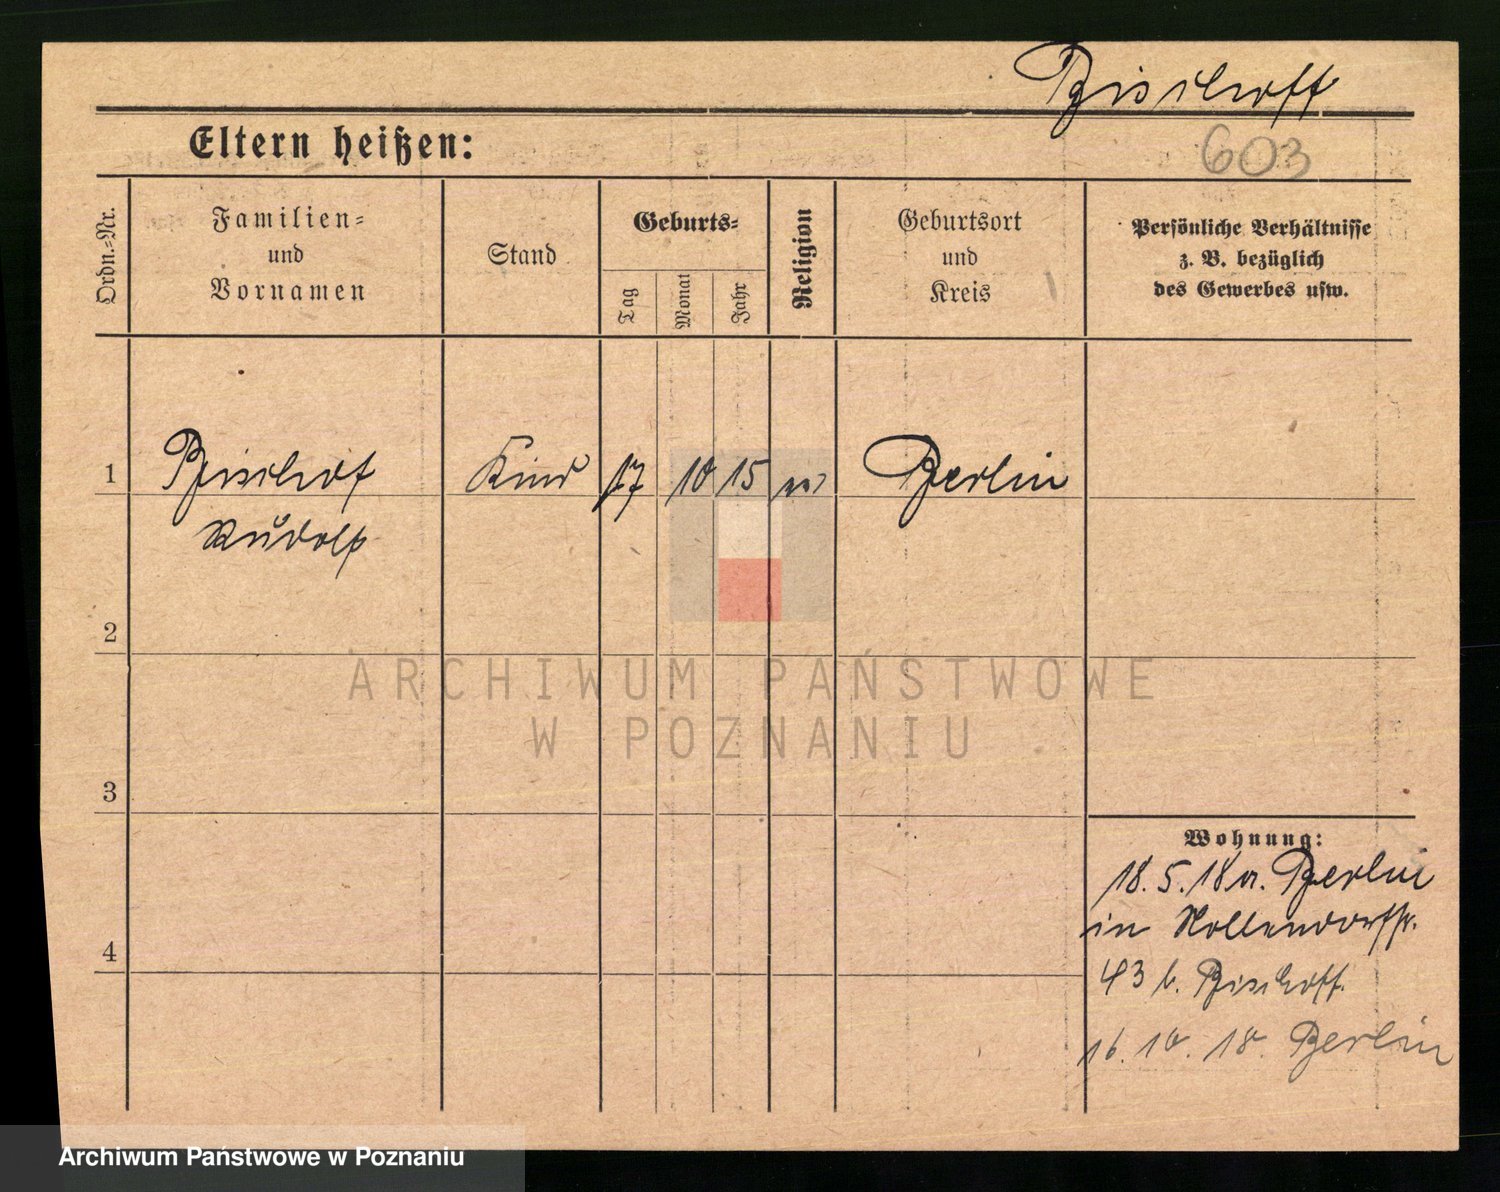 Bischoff
Eltern heißen:
603
Ordn.-Nr.
Familien-
und
Vornamen
Stand
Geburts-
Tag
Monat
Jahr
Religion
Geburtsort
und
Kreis
Persönliche Verhältnisse
z. B. bezüglich
des Gewerbes usw.
1
Bischof
Rudolf
Kind
17
10
15
Berlin
2
3
4
Wohnung:
18. 5. 18 a. Berlin
in Nollendorfstr.
43 b. Bischoff.
16. 10. 18. Berlin
ARCHIWUM PAŃSTWOWE
W POZNANIU
Archiwum Państwowe w Poznaniu